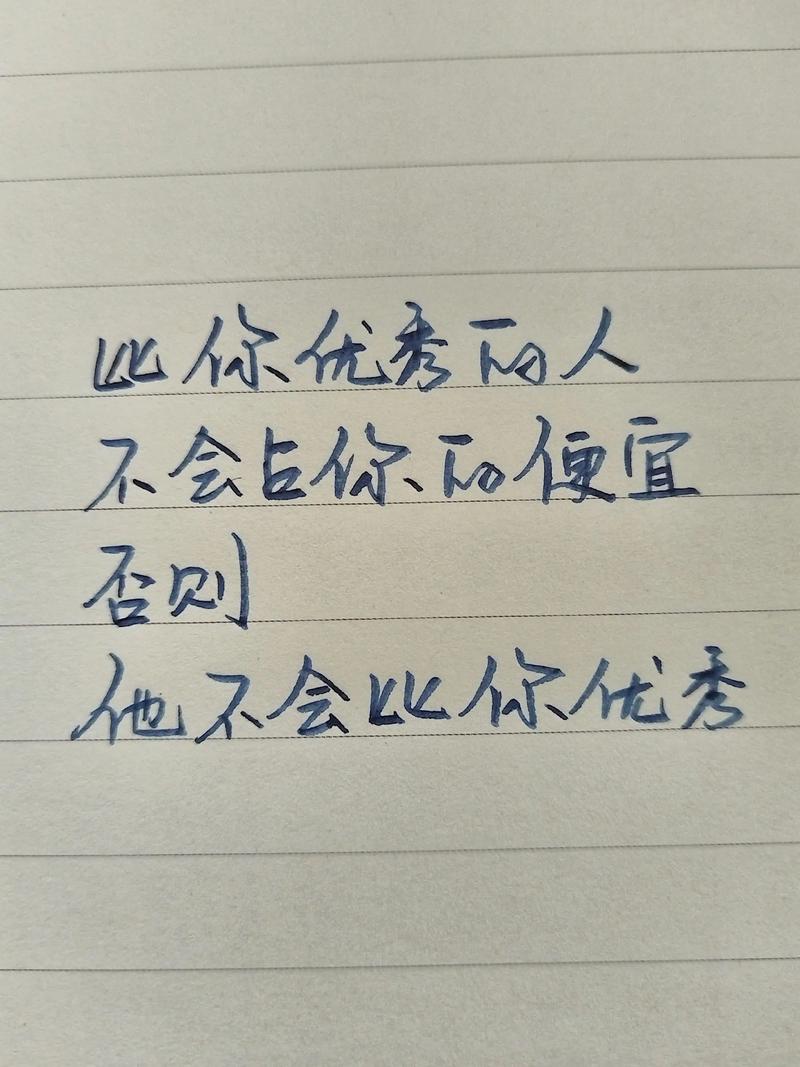 比你优秀的人
不会占你的便宜
否则
他不会比你优秀